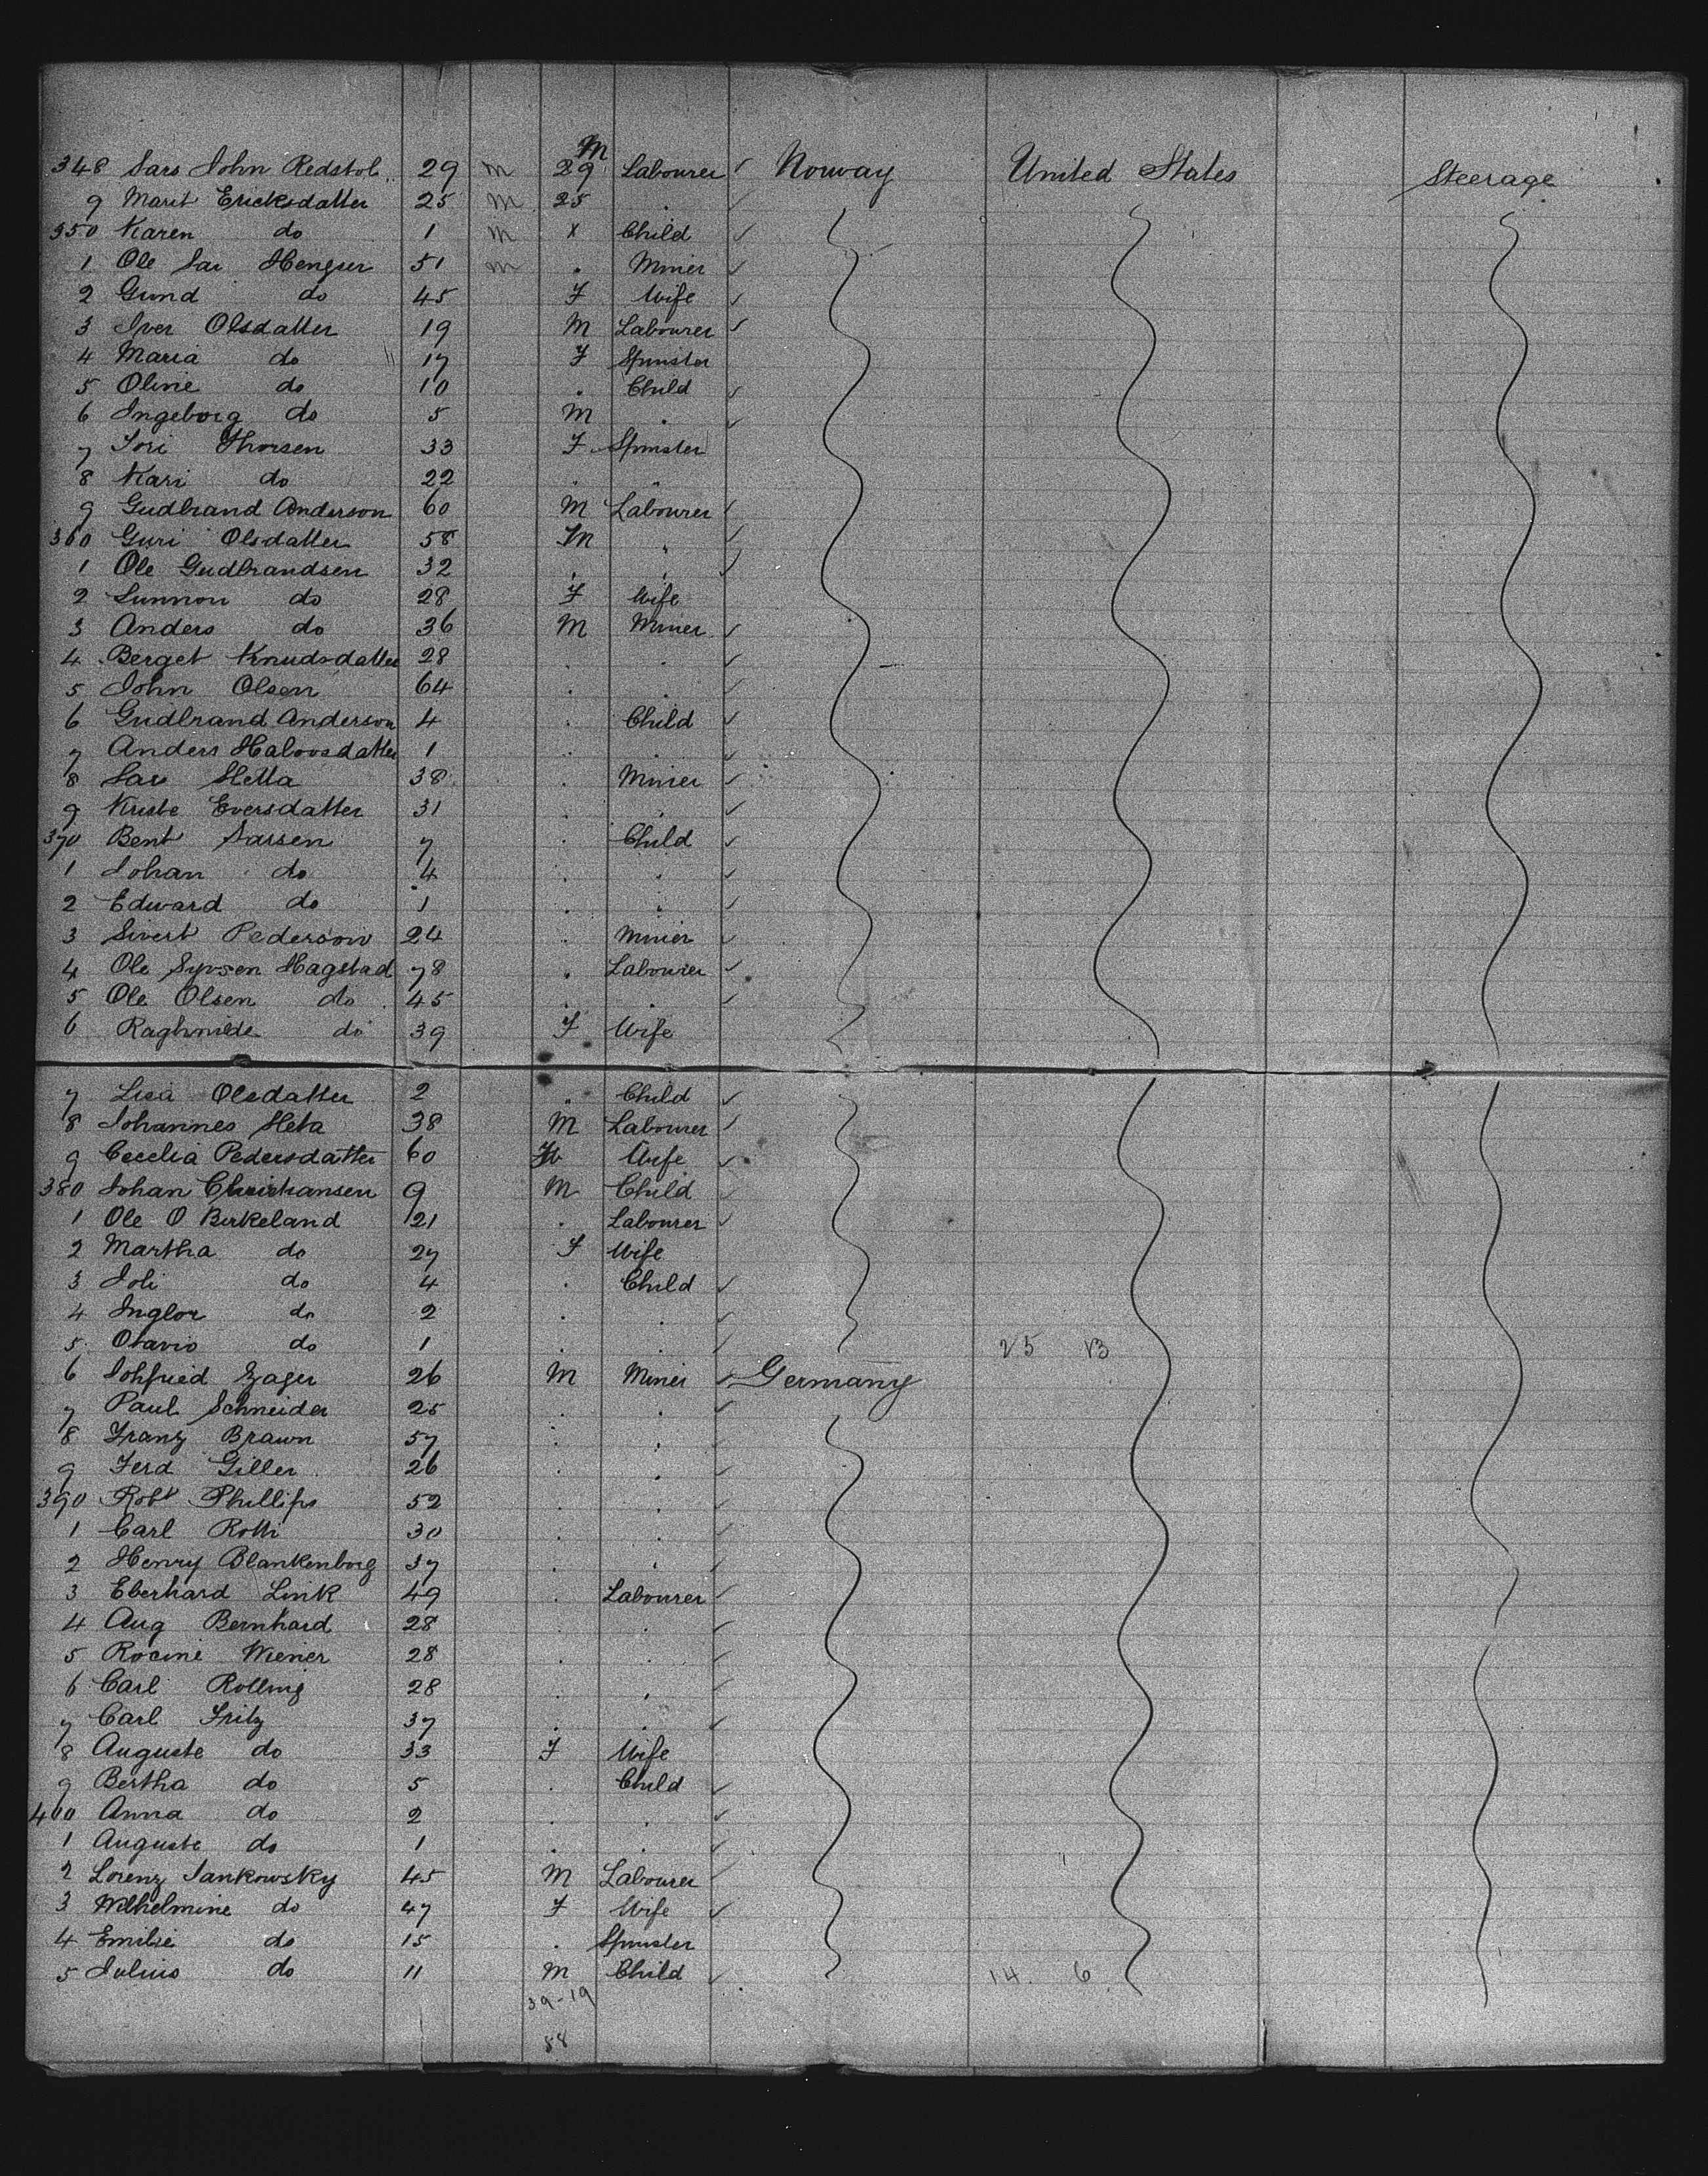 M
348 Lars John Redstol .. 29 m 29 Labourer Norway United States Steerage
9 Marit Ericksdatter 25 m 25 .
350 Karen do 1 m x Child
1 Ole Lar Hengser 51 m . Miner
2 Gund do 45 F Wife
3 Iver Olsdatter 19 M Labourer
4 Maria do 17 F Spinster
5 Oline do 10 . Child
6 Ingeborg do 5 M .
7 Jori Thorsen 33 F Spinster
8 Kari do 22 . .
9 Gudbrand Anderson 60 M Labourer
360 Guri Olsdatter 58 M .
1 Ole Gudbrandsen 32 . .
2 Sunnon do 28 F Wife
3 Anders do 36 M Miner
4 Berget Knudsdatter 28 . .
5 John Olsen 64 . .
6 Gudbrand Anderson 4 . Child
7 Anders Haloosdatter 1 . .
8 Lars Sletta 38 . Miner
9 Kriste Eversdatter 31 . .
370 Bent Larsen 7 . Child
1 Johan do 4 . .
2 Edward do 1 . .
3 Sivert Pederson 24 . Miner
4 Ole Syvsen Hagstad 78 . Labourer
5 Ole Olsen do 45 . .
6 Raghnilde do 39 F Wife
7 Lisa Olsdatter 2 . Child
8 Johannes Sleta 38 M Labourer
9 Cecelia Pedersdatter 60 Wife
380 Johan Christiansen 9 M Child
1 Ole O Birkeland 21 . Labourer
2 Martha do 27 F Wife
3 Joli do 4 . Child
4 Inglor do 2 . .
5 Otavio do 1 . . 25 13
6 Sohfried Zager 26 M Miner Germany
7 Paul Schneider 25 . .
8 Franz Brawn 57 . .
9 Ferd Giller 26 . .
390 Robt Phillips 52 . .
1 Carl Rotti 30 . .
2 Henry Blankenborg 37 . .
3 Eberhard Link 49 . Labourer
4 Aug Bernhard 28 . .
5 Rocine Wiener 28 . .
6 Carl Rolling 28 . .
7 Carl Fritz 37 . .
8 Auguste do 33 F Wife
9 Bertha do 5 . Child
400 Anna do 2 . .
1 Auguste do 1 . .
2 Lorenz Jankowsky 45 M Labourer
3 Wilhelmine do 47 F Wife
4 Emilie do 15 . Spinster
5 Julius do 11 M Child 14. 6
39-19
58